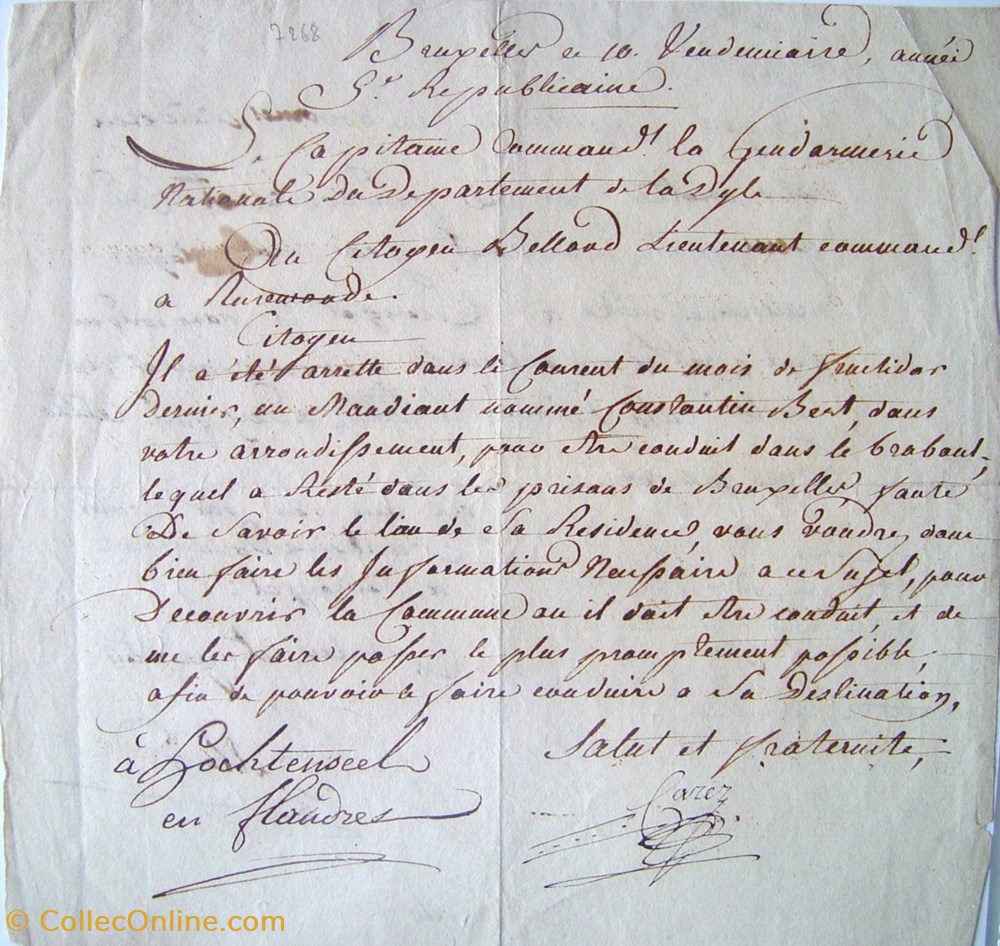 7268
Bruxelles ce 10. Vendemiaire, année
5e. Republicaine.
Le Capitaine Command.t la Gendarmerie
Nationale Du Departement de la Dyle
Au Citoyen Bellard Lieutenant command.t
a Ruremonde.
Citoyen
Il a été arretté dans le Courent du mois de fructidor
Dernier, un Mandiant nommé Constantin Bert, dans
votre arrondissement, pour être conduit dans le brabant,
lequel a Resté dans les prisons de Bruxelles faute
De Savoir le lieu de Sa Residence, vous voudrez donc
bien faire les Informations Nessessaire a ce Sujet, pour
Decouvrir la Commune ou il doit être conduit, et de
me les faire passer le plus promptement possible,
afin de pouvoir le faire conduire a Sa Destination,
à Lochtenseel
en flandres
Salut et fraternité,
Carez
© CollecOnline.com